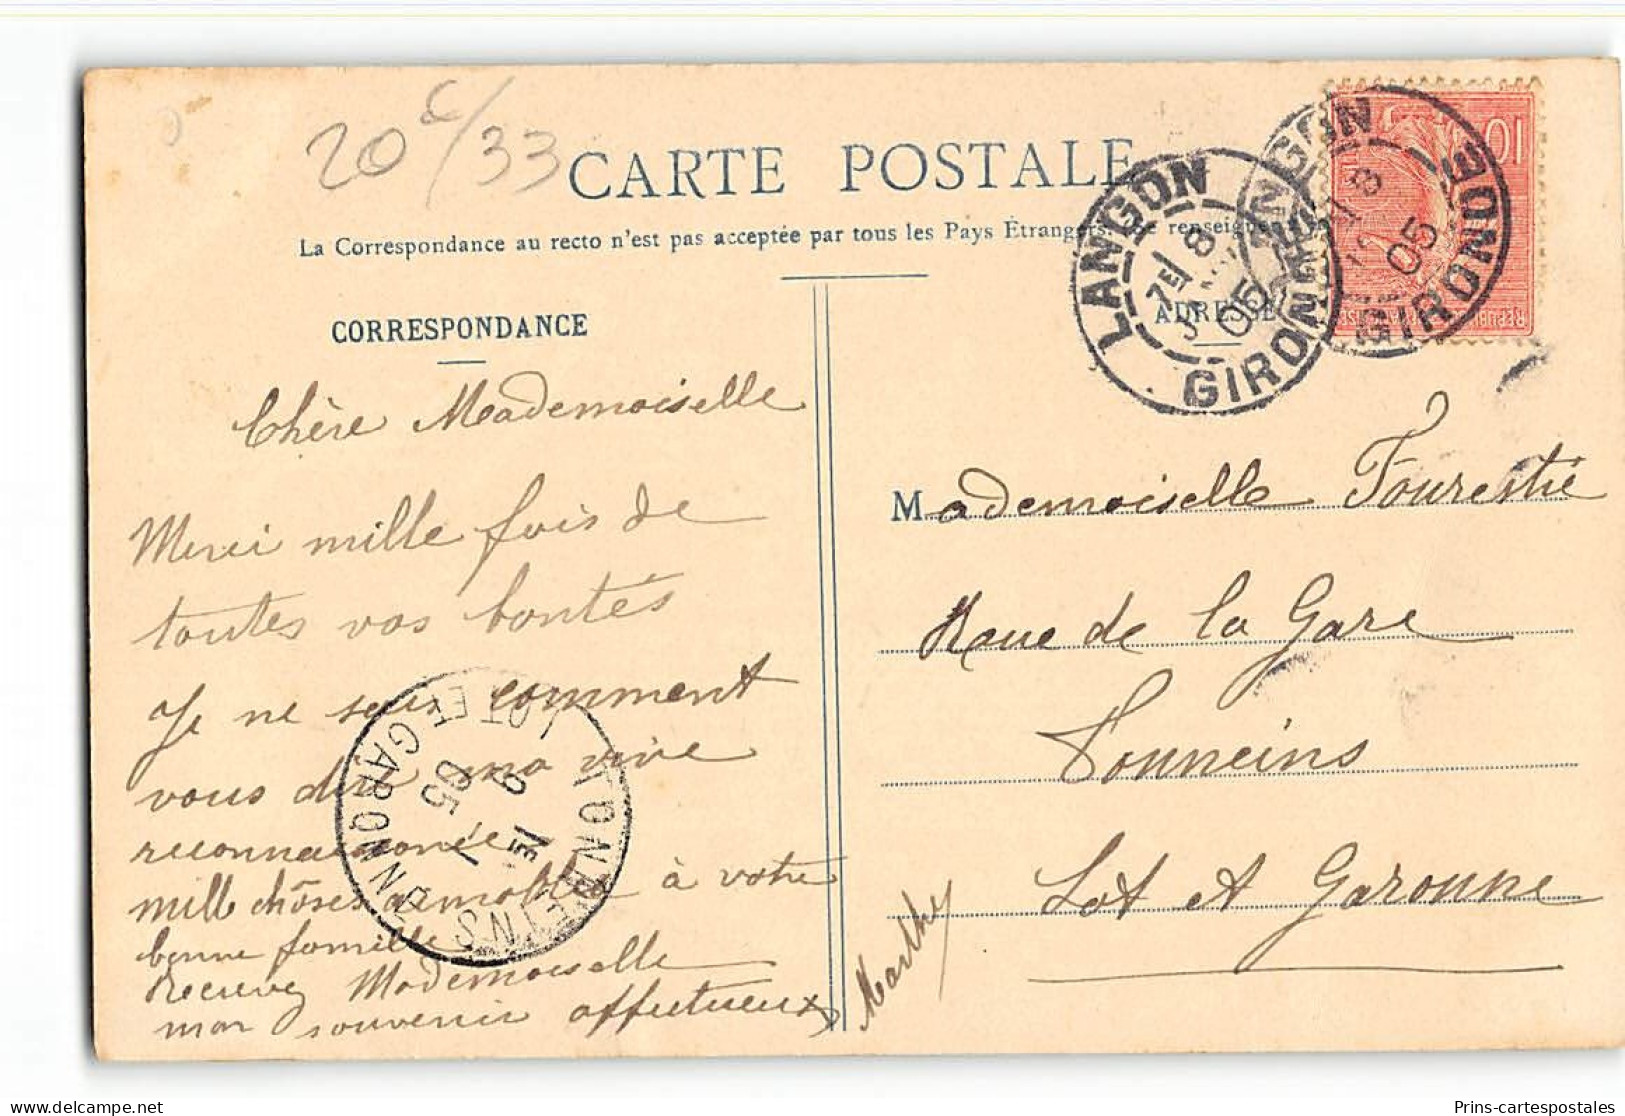 20 c/33
CARTE POSTALE
La Correspondance au recto n'est pas acceptée par tous les Pays Étrangers.
CORRESPONDANCE
ADRESSE
LANGON
GIRONDE
8
05
LANGON
GIRONDE
8
05
10
Chère Mademoiselle
Merci mille fois de
toutes vos bontés
Je ne sais comment
vous dire ma vive
reconnaissance
mille chôses aimables à votre
bonne famille
Recevez Mademoiselle
mon souvenir affectueux
Marthe
TONNEINS
LOT ET GARONNE
9
05
Mademoiselle Fourestié
Roue de la Gare
Tonneins
Lot et Garonne
delcampe.net
Prins-cartespostales